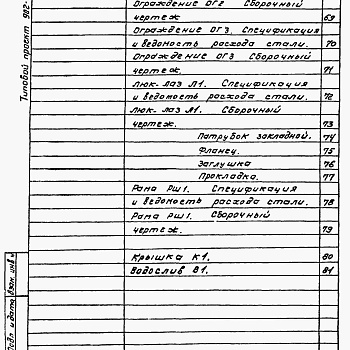 Ограждение ОГ2 Сборочный
чертеж 69
Ограждение ОГ3. Спецификация
и ведомость расхода стали. 70
Ограждение ОГ3 Сборочный
чертеж. 71
Люк-лаз Л1. Спецификация
и ведомость расхода стали. 72
Люк-лаз Л1. Сборочный
чертеж. 73
Патрубок закладной. 74
Фланец. 75
Заглушка 76
Прокладка. 77
Рама РШ1. Спецификация
и ведомость расхода стали. 78
Рама РШ1. Сборочный
чертеж. 79
Крышка К1. 80
Водослив В1. 81
Типовой проект 902-
Подп и дата
Взам. инв №